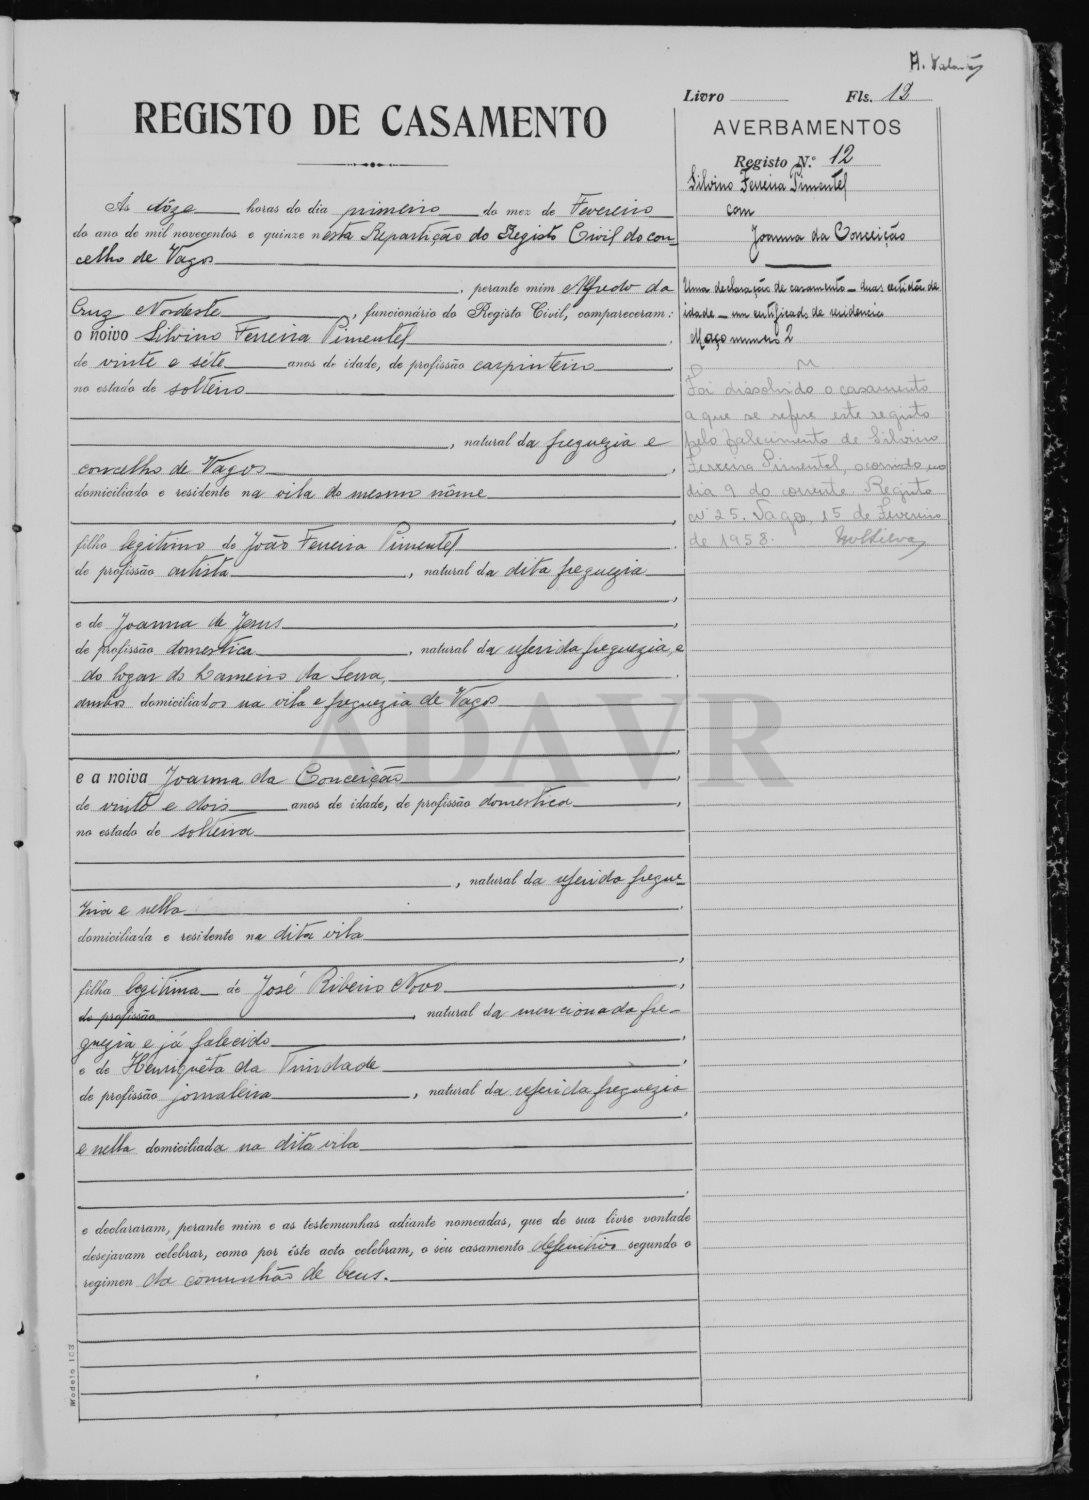 A. Valente
Livro Fls. 12
REGISTO DE CASAMENTO
Ás dôze horas do dia primeiro do mez de Fevereiro
do ano de mil novecentos e quinze nesta Repartição do Registo Civil do con-
celho de Vagos
, perante mim Alfredo da
Cruz Nordeste, funcionário do Registo Civil, compareceram:
o noivo Silvino Ferreira Pimentel
de vinte e séte anos de idade, de profissão carpinteiro
no estado de solteiro
, natural da freguezia e
concelho de Vagos
domiciliado e residente na vila do mesmo nôme
filho legitimo de João Ferreira Pimentel
de profissão artista, natural da dita freguezia
e de Joanna de Jesus
de profissão domestica, natural da referida freguezia, e
do logar do Lameiro da Serra,
ambos domiciliados na vila e freguezia de Vagos
e a noiva Joanna da Conceição
de vinte e dois anos de idade, de profissão domestica
no estado de solteira
, natural da referida fregue-
zia e nella
domiciliada e residente na dita vila
filha legitima de José Ribeiro Novo
de profissão, natural da mencionada fre-
guezia e já falecido
e de Henriquêta da Trindade
de profissão jornaleira, natural da referida freguezia
e nella domiciliada na dita vila
e declararam, perante mim e as testemunhas adiante nomeadas, que de sua livre vontade
desejavam celebrar, como por êste acto celebram, o seu casamento definitivo segundo o
regimen da comunhão de bens.
Modelo 103
AVERBAMENTOS
Registo N.º 12
Silvino Ferreira Pimentel
com
Joanna da Conceição
Uma declaração de casamento - duas certidões de
idade - um certificado de residencia
Maço numero 2
Foi dissolvido o casamento
a que se refere este registo
pelo falecimento de Silvino
Ferreira Pimentel, ocorrido no
dia 9 do corrente. Registo
nº 25. Vagos, 15 de Fevereiro
de 1958.
ADAVR